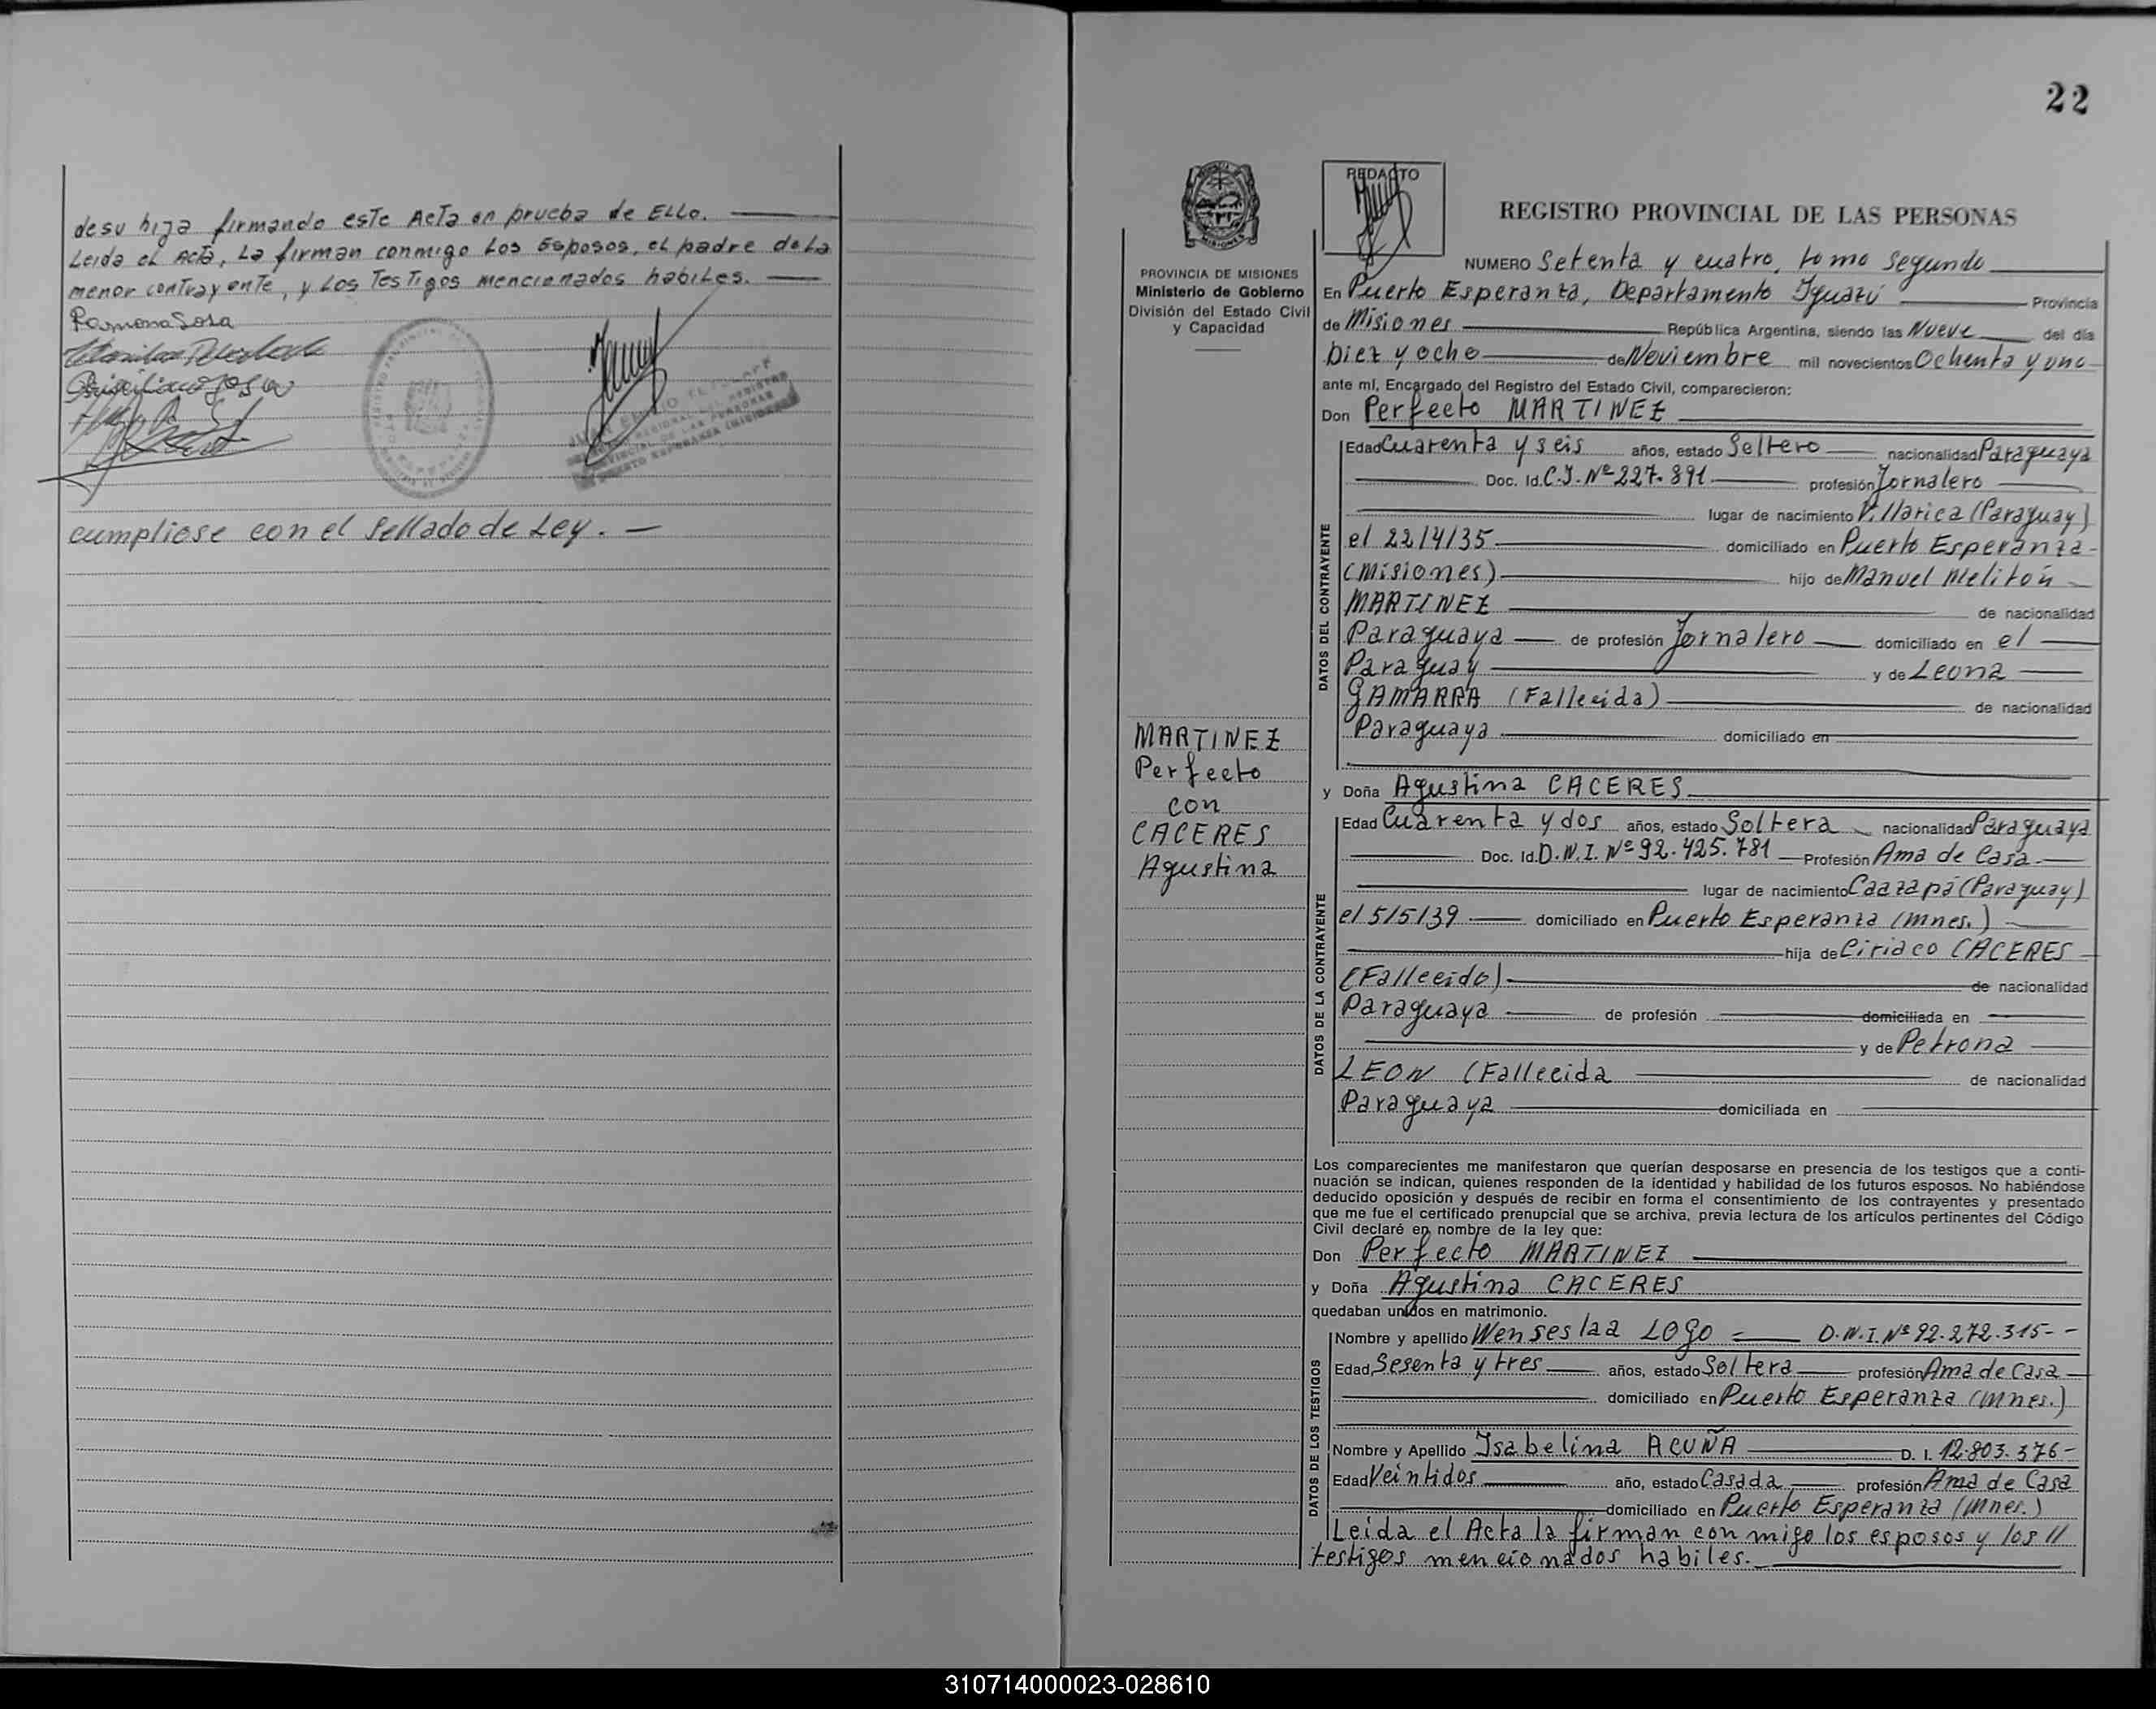 desu hija firmando este Acta en prueba de Ello.
Leida el Acta, La firman conmigo Los Esposos, el padre de La
menor contrayente, y Los Testigos mencionados habiles.
Ramona Sosa
cumpliose con el Sellado de Ley. —
22
REDACTO
REGISTRO PROVINCIAL DE LAS PERSONAS
PROVINCIA DE MISIONES
Ministerio de Gobierno
División del Estado Civil
y Capacidad
NUMERO Setenta y cuatro, tomo Segundo
En Puerto Esperanza, Departamento Iguazú Provincia
de Misiones República Argentina, siendo las Nueve del día
Diez y ocho de Noviembre mil novecientos Ochenta y uno
ante mí, Encargado del Registro del Estado Civil, comparecieron:
Don Perfecto MARTINEZ
DATOS DEL CONTRAYENTE
Edad Cuarenta y seis años, estado Soltero nacionalidad Paraguaya
Doc. Id. C.I. Nº 227.891 profesión Jornalero
lugar de nacimiento Villarica (Paraguay)
el 22/4/35 domiciliado en Puerto Esperanza-
(Misiones) hijo de Manuel Melitón
MARTINEZ de nacionalidad
Paraguaya de profesión Jornalero domiciliado en el
Paraguay y de Leona
GAMARRA (Fallecida) de nacionalidad
Paraguaya domiciliado en
MARTINEZ
Perfecto
con
CACERES
Agustina
y Doña Agustina CACERES
DATOS DE LA CONTRAYENTE
Edad Cuarenta y dos años, estado Soltera nacionalidad Paraguaya
Doc. Id. D.N.I. Nº 92.425.781 Profesión Ama de Casa
lugar de nacimiento Caazapá (Paraguay)
el 5/5/39 domiciliado en Puerto Esperanza (Mnes.)
hija de Ciriaco CACERES
(Fallecido) de nacionalidad
Paraguaya de profesión domiciliada en
y de Petrona
LEON (Fallecida de nacionalidad
Paraguaya domiciliada en
Los comparecientes me manifestaron que querían desposarse en presencia de los testigos que a conti-
nuación se indican, quienes responden de la identidad y habilidad de los futuros esposos. No habiéndose
deducido oposición y después de recibir en forma el consentimiento de los contrayentes y presentado
que me fue el certificado prenupcial que se archiva, previa lectura de los artículos pertinentes del Código
Civil declaré en nombre de la ley que:
Don Perfecto MARTINEZ
y Doña Agustina CACERES
quedaban unidos en matrimonio.
DATOS DE LOS TESTIGOS
Nombre y apellido Wenseslaa LOGO D.N.I. Nº 92.272.315--
Edad Sesenta y tres años, estado Soltera profesión Ama de Casa
domiciliado en Puerto Esperanza (Mnes.)
Nombre y Apellido Isabelina ACUÑA D. I. 12.803.376-
Edad Veintidos año, estado Casada profesión Ama de Casa
domiciliado en Puerto Esperanza (Mnes.)
Leida el Acta la firman con migo los esposos y los //
testigos mencionados habiles.
310714000023-028610